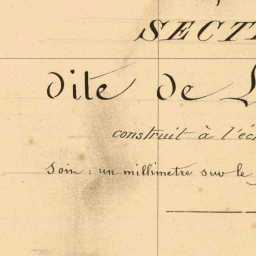 SECTI
dite de L
construit à l'éc
Soin : un millimetre sur le